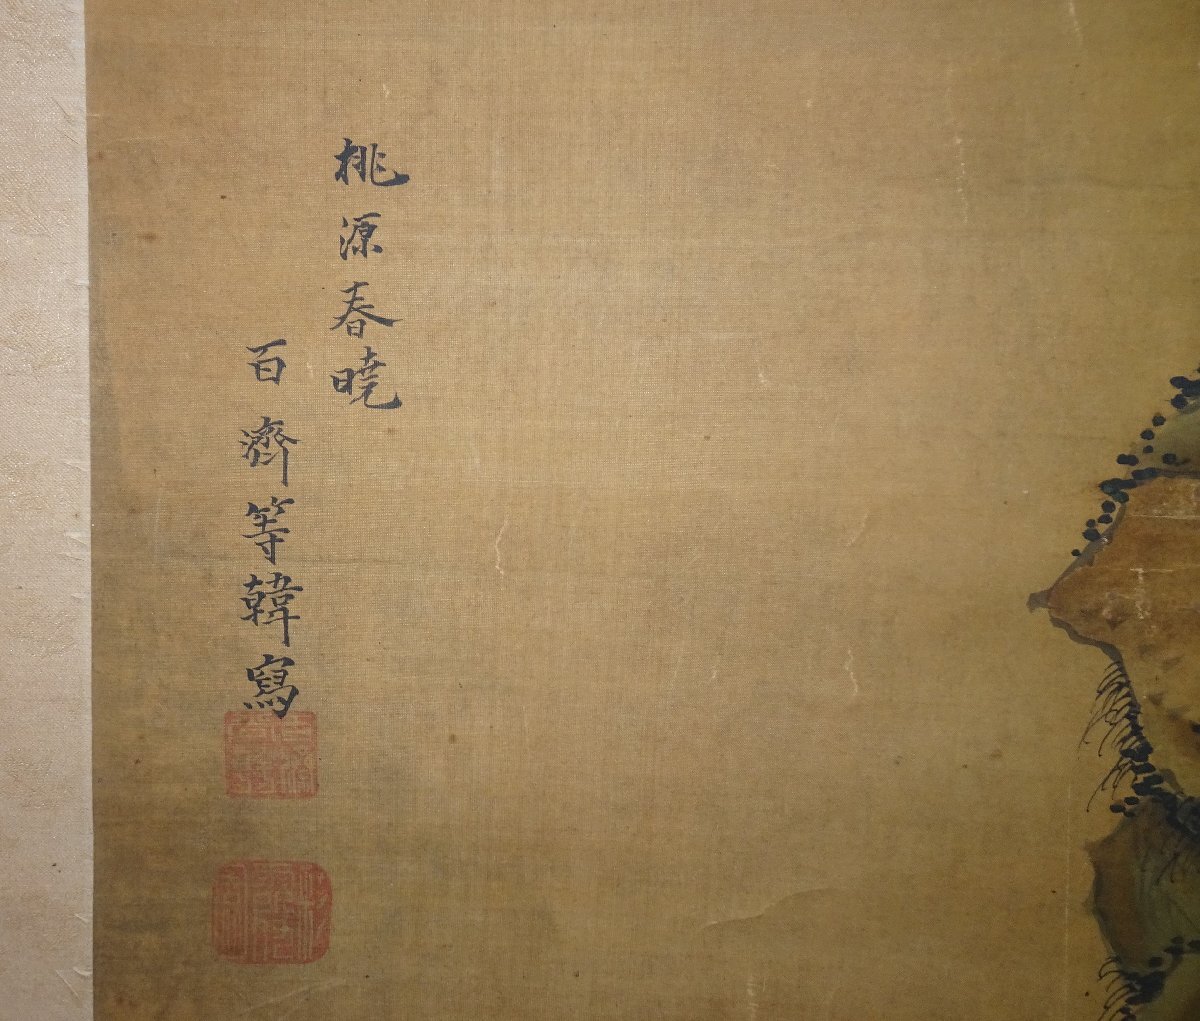 桃源春曉
百濟等韓寫